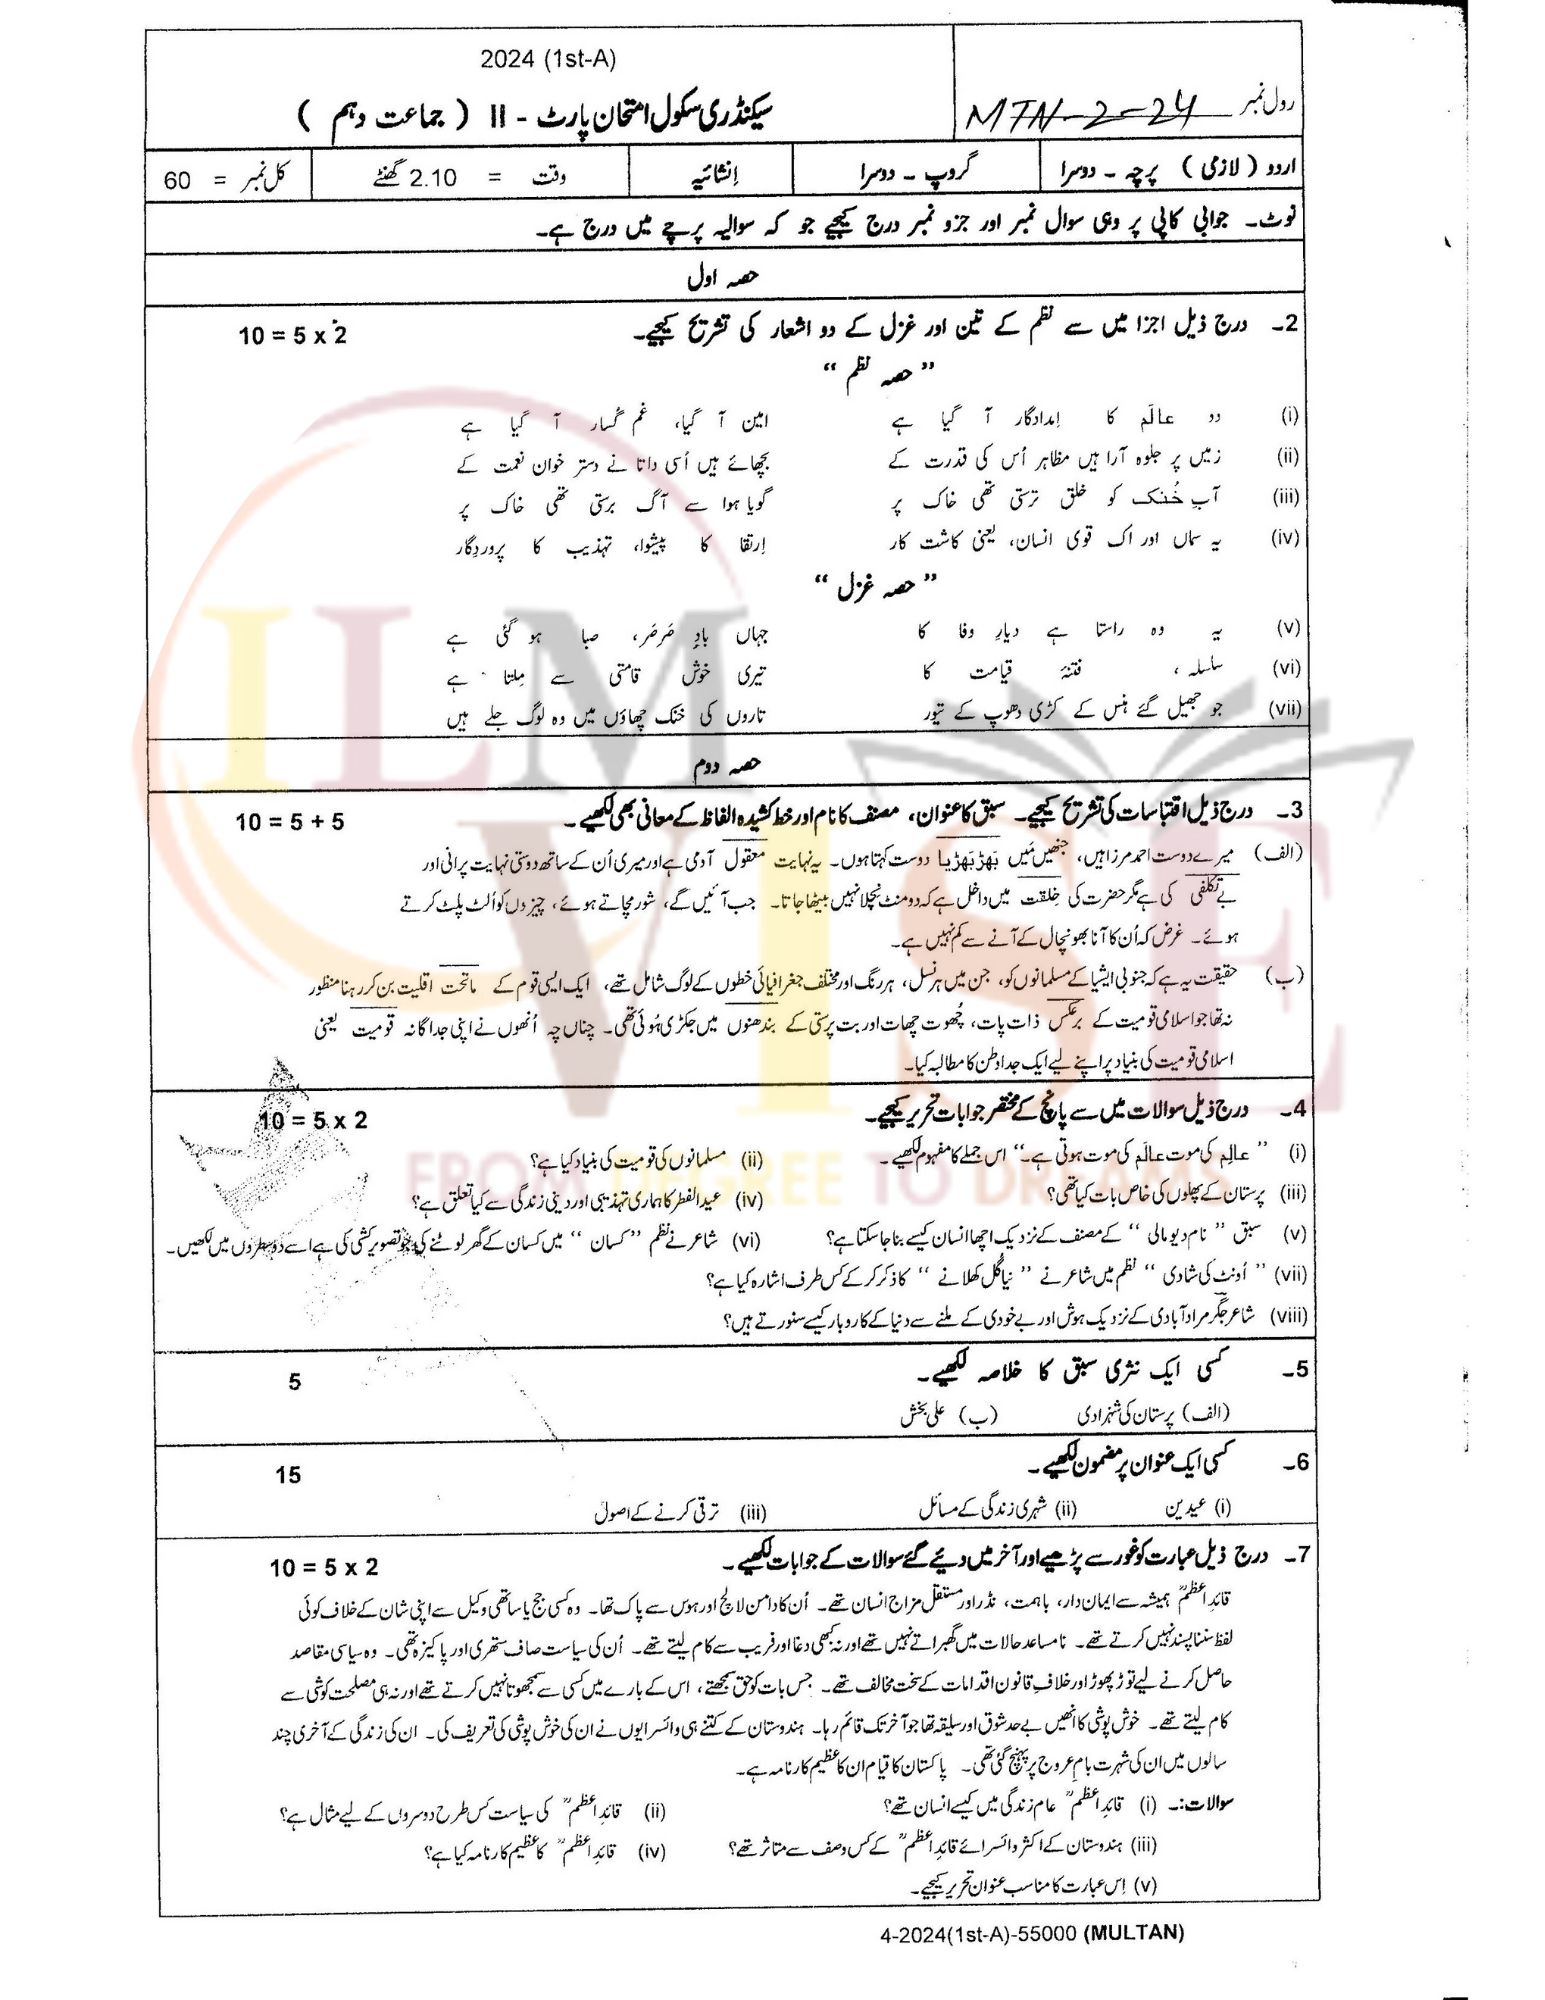 2024 (1st-A)
رول نمبر MTN-2-24
سیکنڈری سکول امتحان پارٹ - II ( جماعت دہم )
اردو ( لازمی ) پرچہ - دوسرا گروپ - دوسرا اِنشائیہ وقت = 2.10 گھنٹے کل نمبر = 60
نوٹ۔ جوابی کاپی پر وہی سوال نمبر اور جزو نمبر درج کیجیے جو کہ سوالیہ پرچے میں درج ہے۔
حصہ اول
2۔ درج ذیل اجزا میں سے نظم کے تین اور غزل کے دو اشعار کی تشریح کیجیے۔ 10 = 5 x 2
” حصہ نظم “
(i) دو عالَم کا اِمدادگار آ گیا ہے امین آ گیا، غم گُسار آ گیا ہے
(ii) زمیں پر جلوہ آرا ہیں مظاہر اُس کی قدرت کے بچھائے ہیں اُسی داتا نے دستر خوان نعمت کے
(iii) آبِ خُنک کو خلق ترستی تھی خاک پر گویا ہوا سے آگ برستی تھی خاک پر
(iv) یہ سماں اور اک قوی انسان، یعنی کاشت کار اِرتقا کا پیشوا، تہذیب کا پروردِگار
” حصہ غزل “
(v) یہ وہ راستا ہے دیارِ وفا کا جہاں بادِ صَرصَر، صبا ہو گئی ہے
(vi) سلسلہ، فتنۂ قیامت کا تیری خوش قامتی سے مِلتا ہے
(vii) جو جھیل گئے ہنس کے کڑی دھوپ کے تیور تاروں کی خنک چھاؤں میں وہ لوگ جلے ہیں
حصہ دوم
3۔ درج ذیل اقتباسات کی تشریح کیجیے۔ سبق کا عنوان، مصنف کا نام اور خط کشیدہ الفاظ کے معانی بھی لکھیے۔ 10 = 5 + 5
(الف) میرے دوست احمد مرزا ہیں، جنھیں مَیں بَھڑبَھڑیا دوست کہتا ہوں۔ یہ نہایت معقول آدمی ہے اور میری اُن کے ساتھ دوستی نہایت پرانی اور
بے تکلفی کی ہے مگر حضرت کی خِلقت میں داخل ہے کہ دو منٹ نچلا نہیں بیٹھا جاتا۔ جب آئیں گے، شور مچاتے ہوئے، چیزوں کو اُلٹ پلٹ کرتے
ہوئے۔ غرض کہ اُن کا آنا بھونچال کے آنے سے کم نہیں ہے۔
(ب) حقیقت یہ ہے کہ جنوبی ایشیا کے مسلمانوں کو، جن میں ہر نسل، ہر رنگ اور مختلف جغرافیائی خطوں کے لوگ شامل تھے، ایک ایسی قوم کے ماتحت اقلیت بن کر رہنا منظور
نہ تھا جو اسلامی قومیت کے برعکس ذات پات، چُھوت چھات اور بت پرستی کے بندھنوں میں جکڑی ہُوئی تھی۔ چناں چہ اُنھوں نے اپنی جداگانہ قومیت یعنی
اسلامی قومیت کی بنیاد پر اپنے لیے ایک جدا وطن کا مطالبہ کیا۔
4۔ درج ذیل سوالات میں سے پانچ کے مختصر جوابات تحریر کیجیے۔ 10 = 5 x 2
(i) ” عالِم کی موت عالَم کی موت ہوتی ہے۔“ اس جملے کا مفہوم لکھیے۔ (ii) مسلمانوں کی قومیت کی بنیاد کیا ہے؟
(iii) پرستان کے پھلوں کی خاص بات کیا تھی؟ (iv) عید الفطر کا ہماری تہذیبی اور دینی زندگی سے کیا تعلق ہے؟
(v) سبق ” نام دیو مالی “ کے مصنف کے نزدیک اچھا انسان کیسے بنا جا سکتا ہے؟ (vi) شاعر نے نظم ” کسان “ میں کسان کے گھر لوٹنے کی جو تصویر کشی کی ہے اسے دو سطروں میں لکھیں۔
(vii) ” اُونٹ کی شادی “ نظم میں شاعر نے ” نیا گُل کھلانے “ کا ذکر کر کے کس طرف اشارہ کیا ہے؟
(viii) شاعر جگر مراد آبادی کے نزدیک ہوش اور بے خودی کے ملنے سے دنیا کے کاروبار کیسے سنورتے ہیں؟
5۔ کسی ایک نثری سبق کا خلاصہ لکھیے۔ 5
(الف) پرستان کی شہزادی (ب) علی بخش
6۔ کسی ایک عنوان پر مضمون لکھیے۔ 15
(i) عیدین (ii) شہری زندگی کے مسائل (iii) ترقی کرنے کے اصول
7۔ درج ذیل عبارت کو غور سے پڑھیے اور آخر میں دیئے گئے سوالات کے جوابات لکھیے۔ 10 = 5 x 2
قائدِ اعظمؒ ہمیشہ سے ایمان دار، باہمت، نڈر اور مستقل مزاج انسان تھے۔ اُن کا دامن لالچ اور ہوس سے پاک تھا۔ وہ کسی جج یا ساتھی وکیل سے اپنی شان کے خلاف کوئی
لفظ سننا پسند نہیں کرتے تھے۔ نامساعد حالات میں گھبراتے نہیں تھے اور نہ کبھی دغا اور فریب سے کام لیتے تھے۔ اُن کی سیاست صاف ستھری اور پاکیزہ تھی۔ وہ سیاسی مقاصد
حاصل کرنے کے لیے توڑ پھوڑ اور خلافِ قانون اقدامات کے سخت مخالف تھے۔ جس بات کو حق سمجھتے، اس کے بارے میں کسی سے سمجھوتا نہیں کرتے تھے اور نہ ہی مصلحت کوشی سے
کام لیتے تھے۔ خوش پوشی کا انھیں بے حد شوق اور سلیقہ تھا جو آخر تک قائم رہا۔ ہندوستان کے کتنے ہی وائسرایوں نے ان کی خوش پوشی کی تعریف کی۔ ان کی زندگی کے آخری چند
سالوں میں ان کی شہرت بامِ عروج پر پہنچ گئی تھی۔ پاکستان کا قیام ان کا عظیم کارنامہ ہے۔
سوالات:۔ (i) قائدِ اعظمؒ عام زندگی میں کیسے انسان تھے؟ (ii) قائدِ اعظمؒ کی سیاست کس طرح دوسروں کے لیے مثال ہے؟
(iii) ہندوستان کے اکثر وائسرائے قائدِ اعظمؒ کے کس وصف سے متاثر تھے؟ (iv) قائدِ اعظمؒ کا عظیم کارنامہ کیا ہے؟
(v) اِس عبارت کا مناسب عنوان تحریر کیجیے۔
4-2024(1st-A)-55000 (MULTAN)
ILM
VISE
FROM DEGREE TO DREAMS